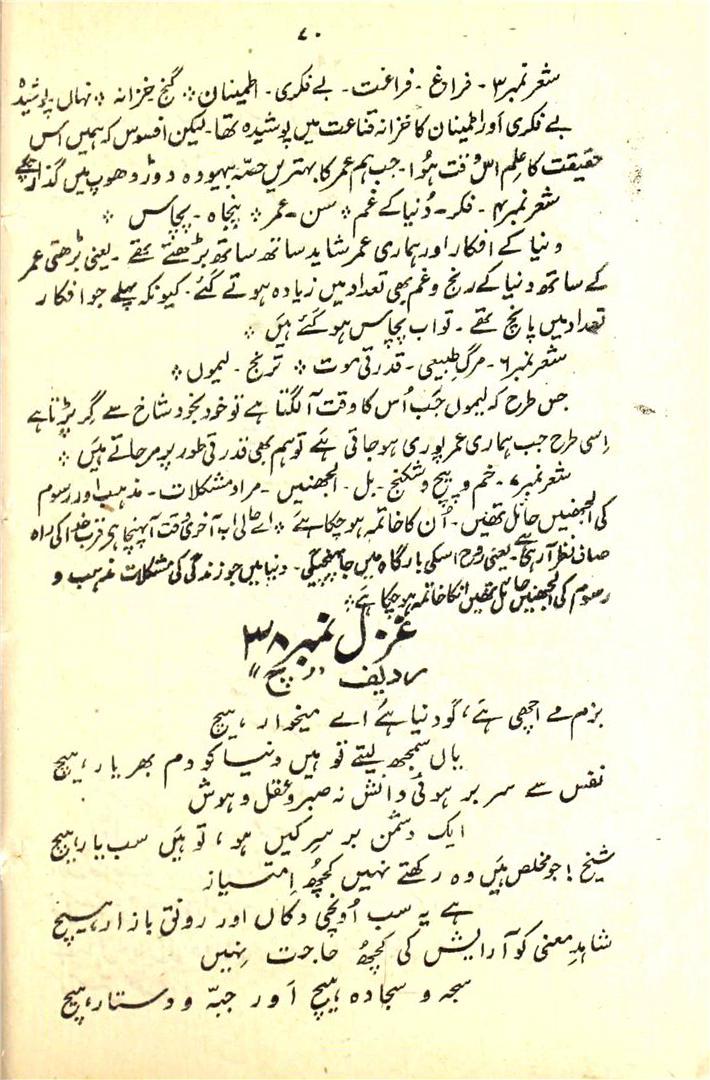 ۷۰
شعر نمبر ۳ - فراغ - فراغت - بے فکری - اطمینان ٭ گنج خزانہ ٭ نہاں - پوشیدہ
بے فکری اور اطمینان کا خزانہ قناعت میں پوشیدہ تھا - لیکن افسوس کہ ہمیں اس
حقیقت کا علم اس وقت ہُوا - جب ہم عمر کا بہترین حصّہ بیہودہ دوڑ دھوپ میں گذار چکے
شعر نمبر ۴ - فکر - دُنیا کے غم ٭ سن - عمر ٭ پنجاہ - پچاس ٭
دنیا کے افکار اور ہماری عمر شاید ساتھ ساتھ بڑھتے تھے - یعنی بڑھتی عمر
کے ساتھ دنیا کے رنج و غم بھی تعداد میں زیادہ ہوتے گئے - کیونکہ پہلے جو افکار
تعداد میں پانچ تھے - تو اب پچاس ہو گئے ہیں ٭
شعر نمبر ۶ - مرگِ طبیعی - قدرتی موت ٭ ترنج - لیموں ٭
جس طرح کہ لیموں جب اُس کا وقت آ لگتا ہے تو خود بخود شاخ سے گر پڑتا ہے
اِسی طرح جب ہماری عمر پوری ہو جاتی ہے تو ہم بھی قدرتی طور پر مر جاتے ہیں ٭
شعر نمبر ۷ - خم و پیچ و شکنج - بل - الجھنیں - مراد مشکلات - مذہب اور رسوم
کی الجھنیں حائل تھیں - اُن کا خاتمہ ہو چکا ہے ٭ اے حالی اب آخری وقت آ پہنچا ہے قربِ خدا کی راہ
صاف نظر آ رہی ہے - یعنی روح اسکی بارگاہ میں جا پہنچیگی - دنیا میں جو زندگی کی مشکلات مذہب و
رسوم کی الجھنیں حائل تھیں انکا خاتمہ ہو چکا ہے ٭
غزل نمبر ۳۸
ردیف "ہیچ"
بزمِ مے اچھی ہے، گو دنیا ہے اے میخوار، ہیچ
یاں سمجھ لیتے تو ہیں دنیا کو دم بھر یار، ہیچ
نفس سے سربر ہوئی دانش نہ صبر و عقل و ہوش
ایک دشمن بر سرِ کیں ہو، تو ہیں سب یار ہیچ
شیخ! جو مخلص ہیں وہ رکھتے نہیں کچھُ اِمتیاز
ہے یہ سب اُونچی دکاں اور رونق بازار، ہیچ
شاہدِ معنی کو آرایش کی کچھُ حاجت نہیں
سجہ و سجادہ ہیچ اَور جبّہ و دستار، ہیچ